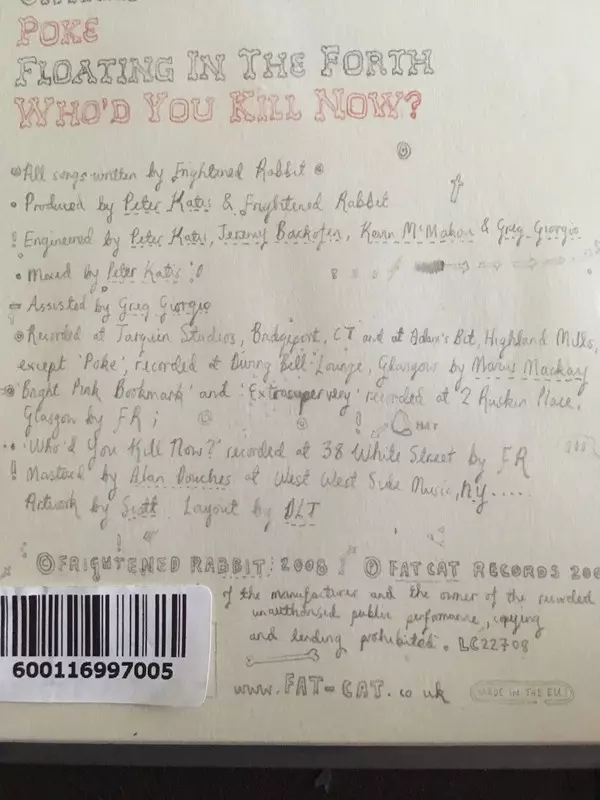 POKE
FLOATING IN THE FORTH
WHO'D YOU KILL NOW?
All songs written by Frightened Rabbit
Produced by Peter Katis & Frightened Rabbit
Engineered by Peter Katis, Jeremy Backofen, Kevin McMahon & Greg Giorgio
Mixed by Peter Katis
Assisted by Greg Giorgio
Recorded at Tarquin Studios, Bridgeport, CT and at Adam's Bit, Highland Mills,
except 'Poke', recorded at Diving Bell Lounge, Glasgow by Marcus Mackay
'Bright Pink Bookmark' and 'Extrasupervery' recorded at 2 Ruskin Place,
Glasgow by FR;
HAT
'Who'd You Kill Now?' recorded at 38 White Street by FR
Mastered by Alan Douches at West West Side Music, NY.....
Artwork by Scott Layout by DLT
© FRIGHTENED RABBIT 2008 ℗ FATCAT RECORDS 200
of the manufacturer and the owner of the recorded
unauthorised public performance, copying
and lending prohibited. LC22708
600116997005
www.FAT-CAT.co.uk
MADE IN THE EU